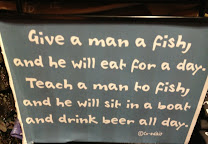 Give a man a fish,
and he will eat for a day.
Teach a man to fish,
and he will sit in a boat
and drink beer all day.